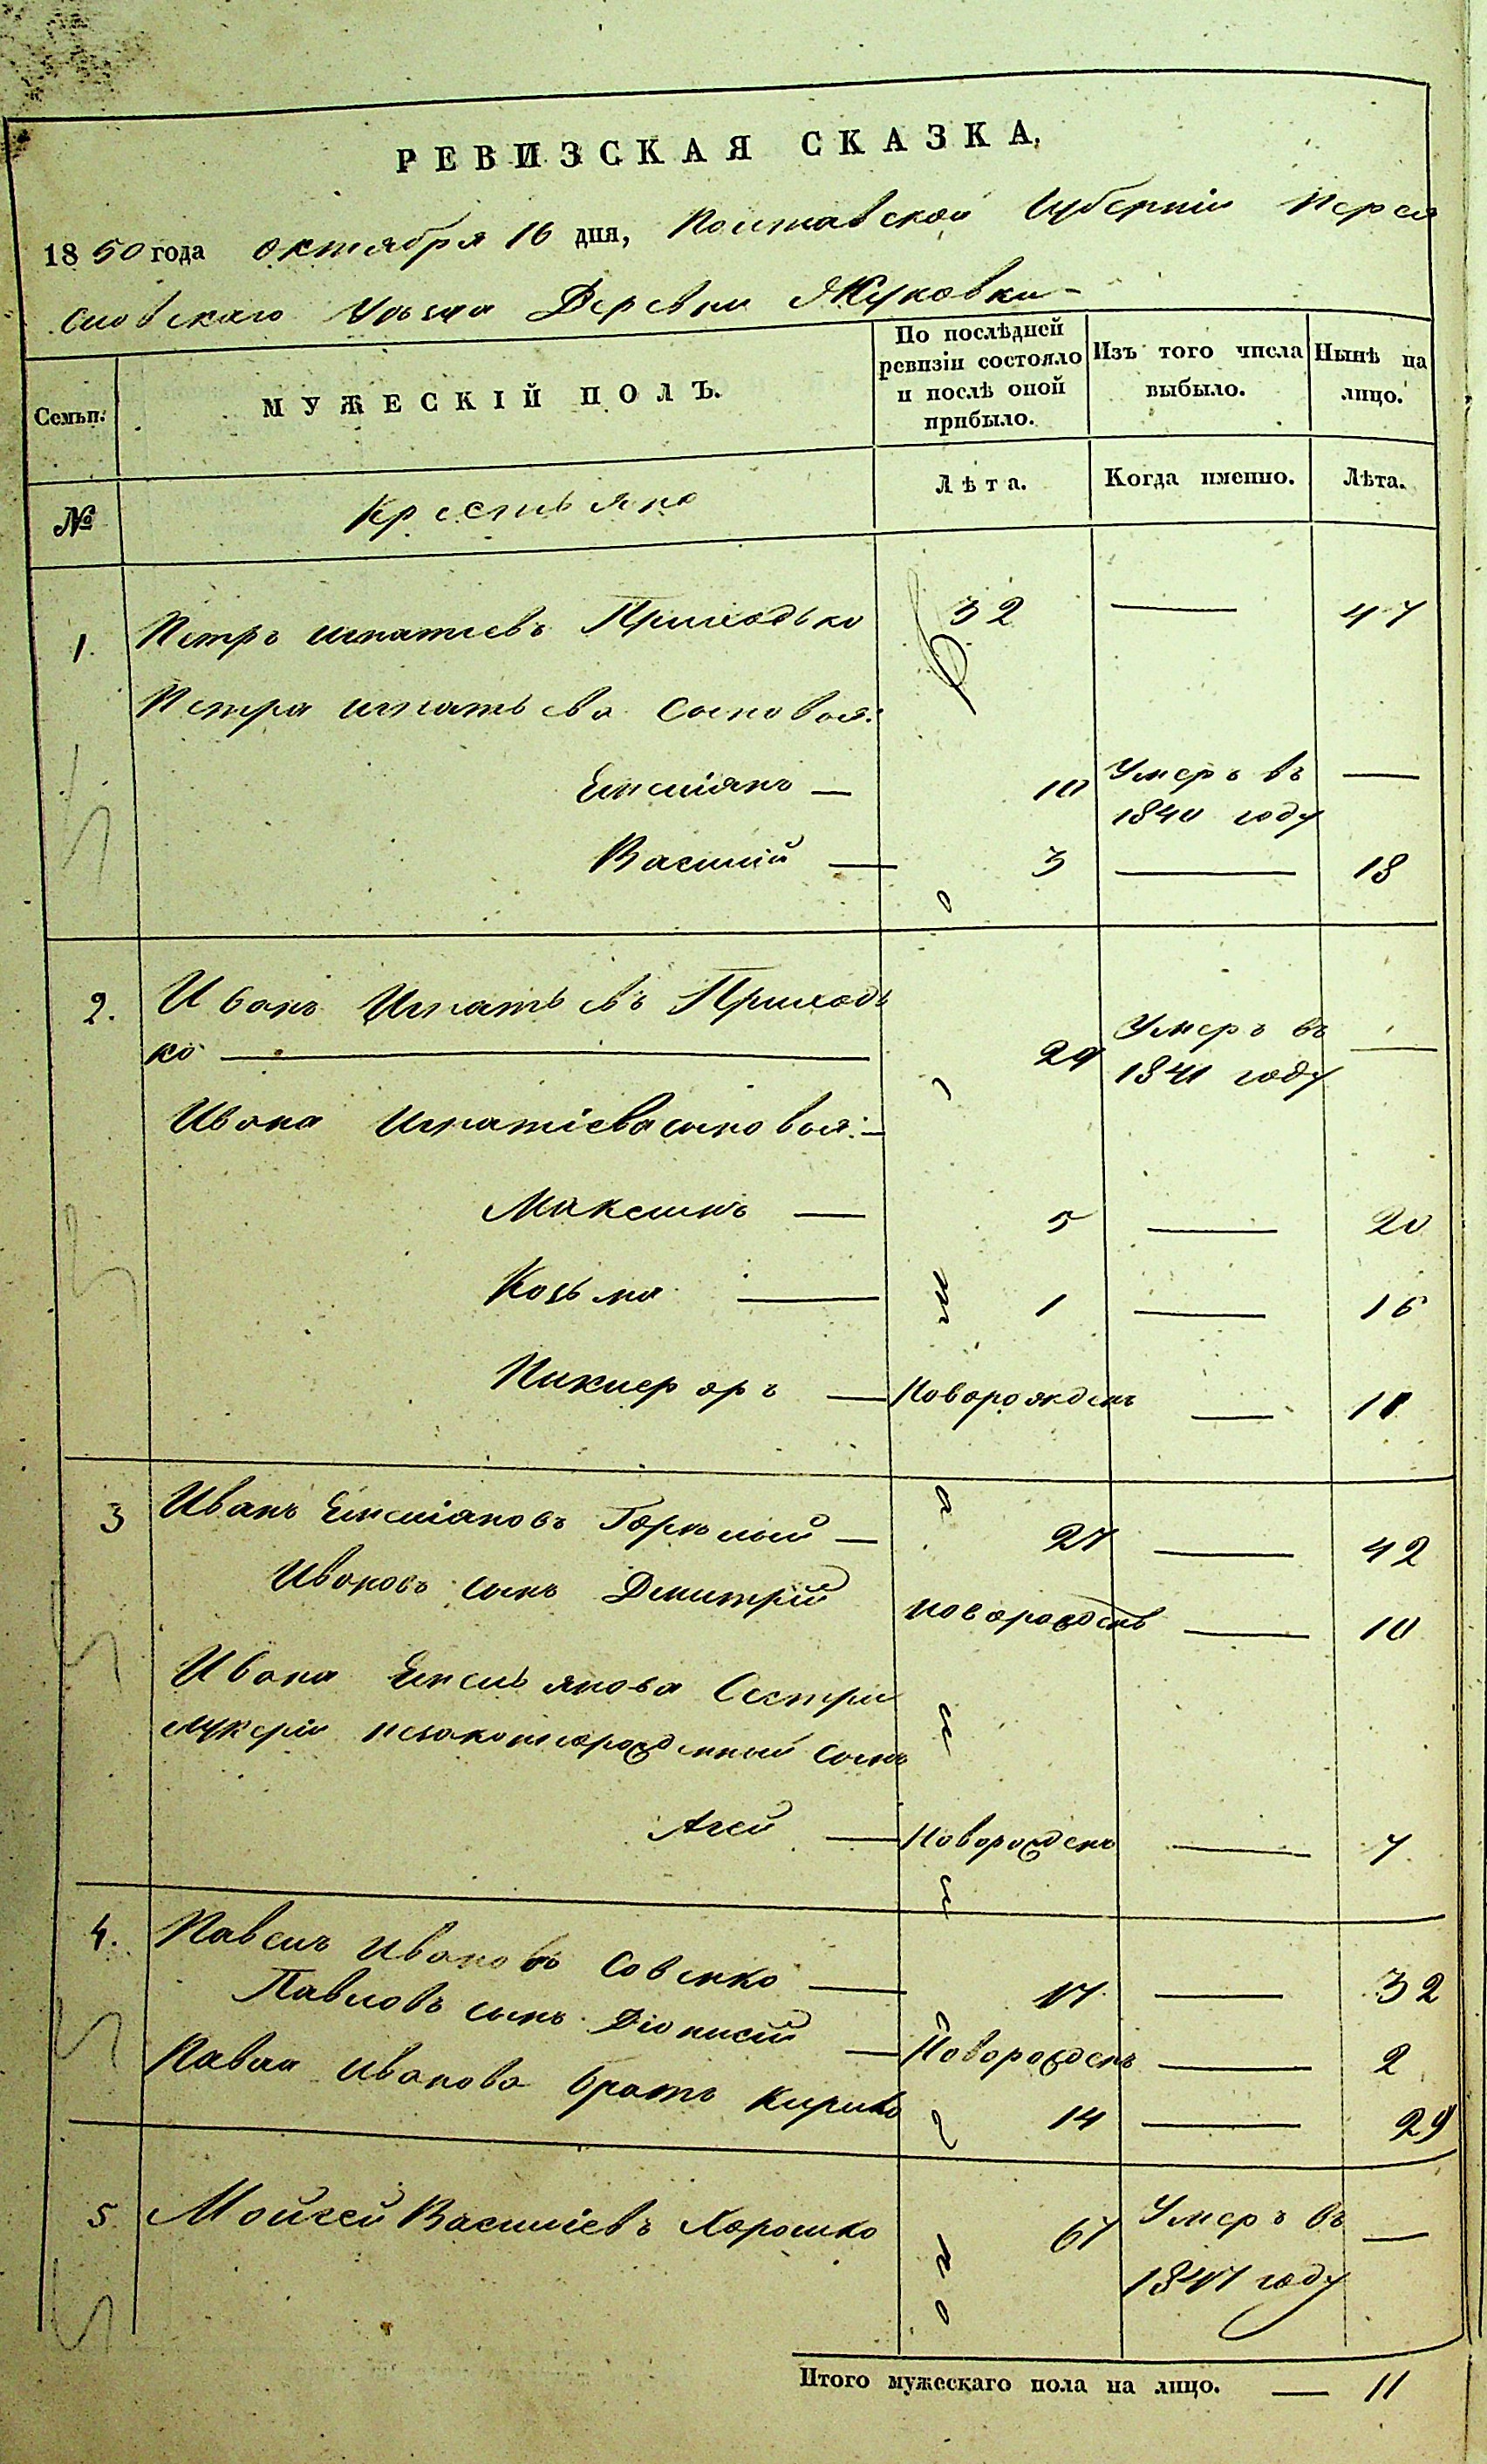 РЕВИЗСКАЯ СКАЗКА,
1850 года октября 16 дня, Полтавской Губерніи Перея
словскаго Уѣзда Деревни Жуковки
Семьи.
МУЖЕСКІЙ ПОЛЪ.
По послѣдней ревизіи состояло и послѣ оной прибыло.
Изъ того числа выбыло.
Нынѣ на лицо.
№
Крестьяне
Лѣта.
Когда именно.
Лѣта.
1. Петръ Игнатіевъ Приходько 32 — 47
Петра Игнатьева Сыновья:
Емеліянъ — 10 Умеръ въ —
1840 году
Василій — 3 — 18
2. Иванъ Игнатьевъ Приходь
ко — 29 Умеръ въ 1841 году —
Ивана Игнатіева сыновья: —
Максимъ — 5 — 20
Козьма — 1 — 16
Никиеръ — Новорожденъ — 11
3 Иванъ Емеліановъ Горѣлый — 27 — 42
Ивановъ сынъ Димитрій новорожденъ — 10
Ивана Емельянова Сестри
Лукеріи незаконнорожденный сынъ
Агей — Новорожденъ — 7
4. Павелъ Ивановъ Совенко — 17 — 32
Павловъ сынъ Діонисій — Новорожденъ — 2
Павла Иванова братъ Кирило 14 — 29
5 Мойсей Василіевъ Хорошко 67 Умеръ въ —
1847 году
Итого мужескаго пола на лицо. — 11